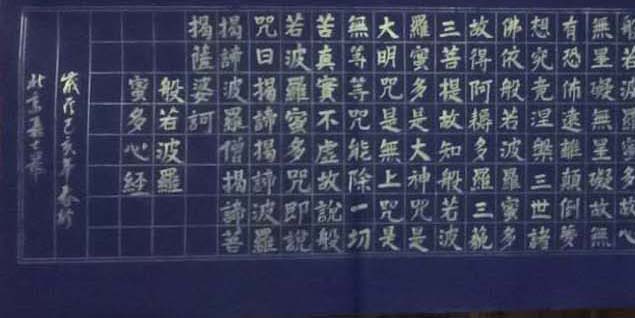 般若波羅蜜多故心
無罣礙無罣礙故無
有恐怖遠離顛倒夢
想究竟涅槃三世諸
佛依般若波羅蜜多
故得阿耨多羅三藐
三菩提故知般若波
羅蜜多是大神咒是
大明咒是無上咒是
無等等咒能除一切
苦真實不虛故說般
若波羅蜜多咒即說
咒曰揭諦揭諦波羅
揭諦波羅僧揭諦菩
揭薩婆訶
般若波羅
蜜多心經
歲次己亥年春
北京